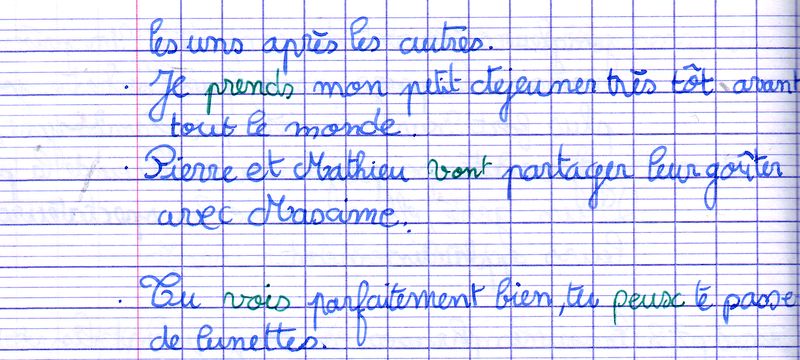 les uns après les autres.
. Je prends mon petit dejeuner très tôt avant
tout le monde.
. Pierre et Mathieu vont partager leur goûter
avec Maxime.
. Tu vois parfaitement bien, tu peux te passe
de lunettes.